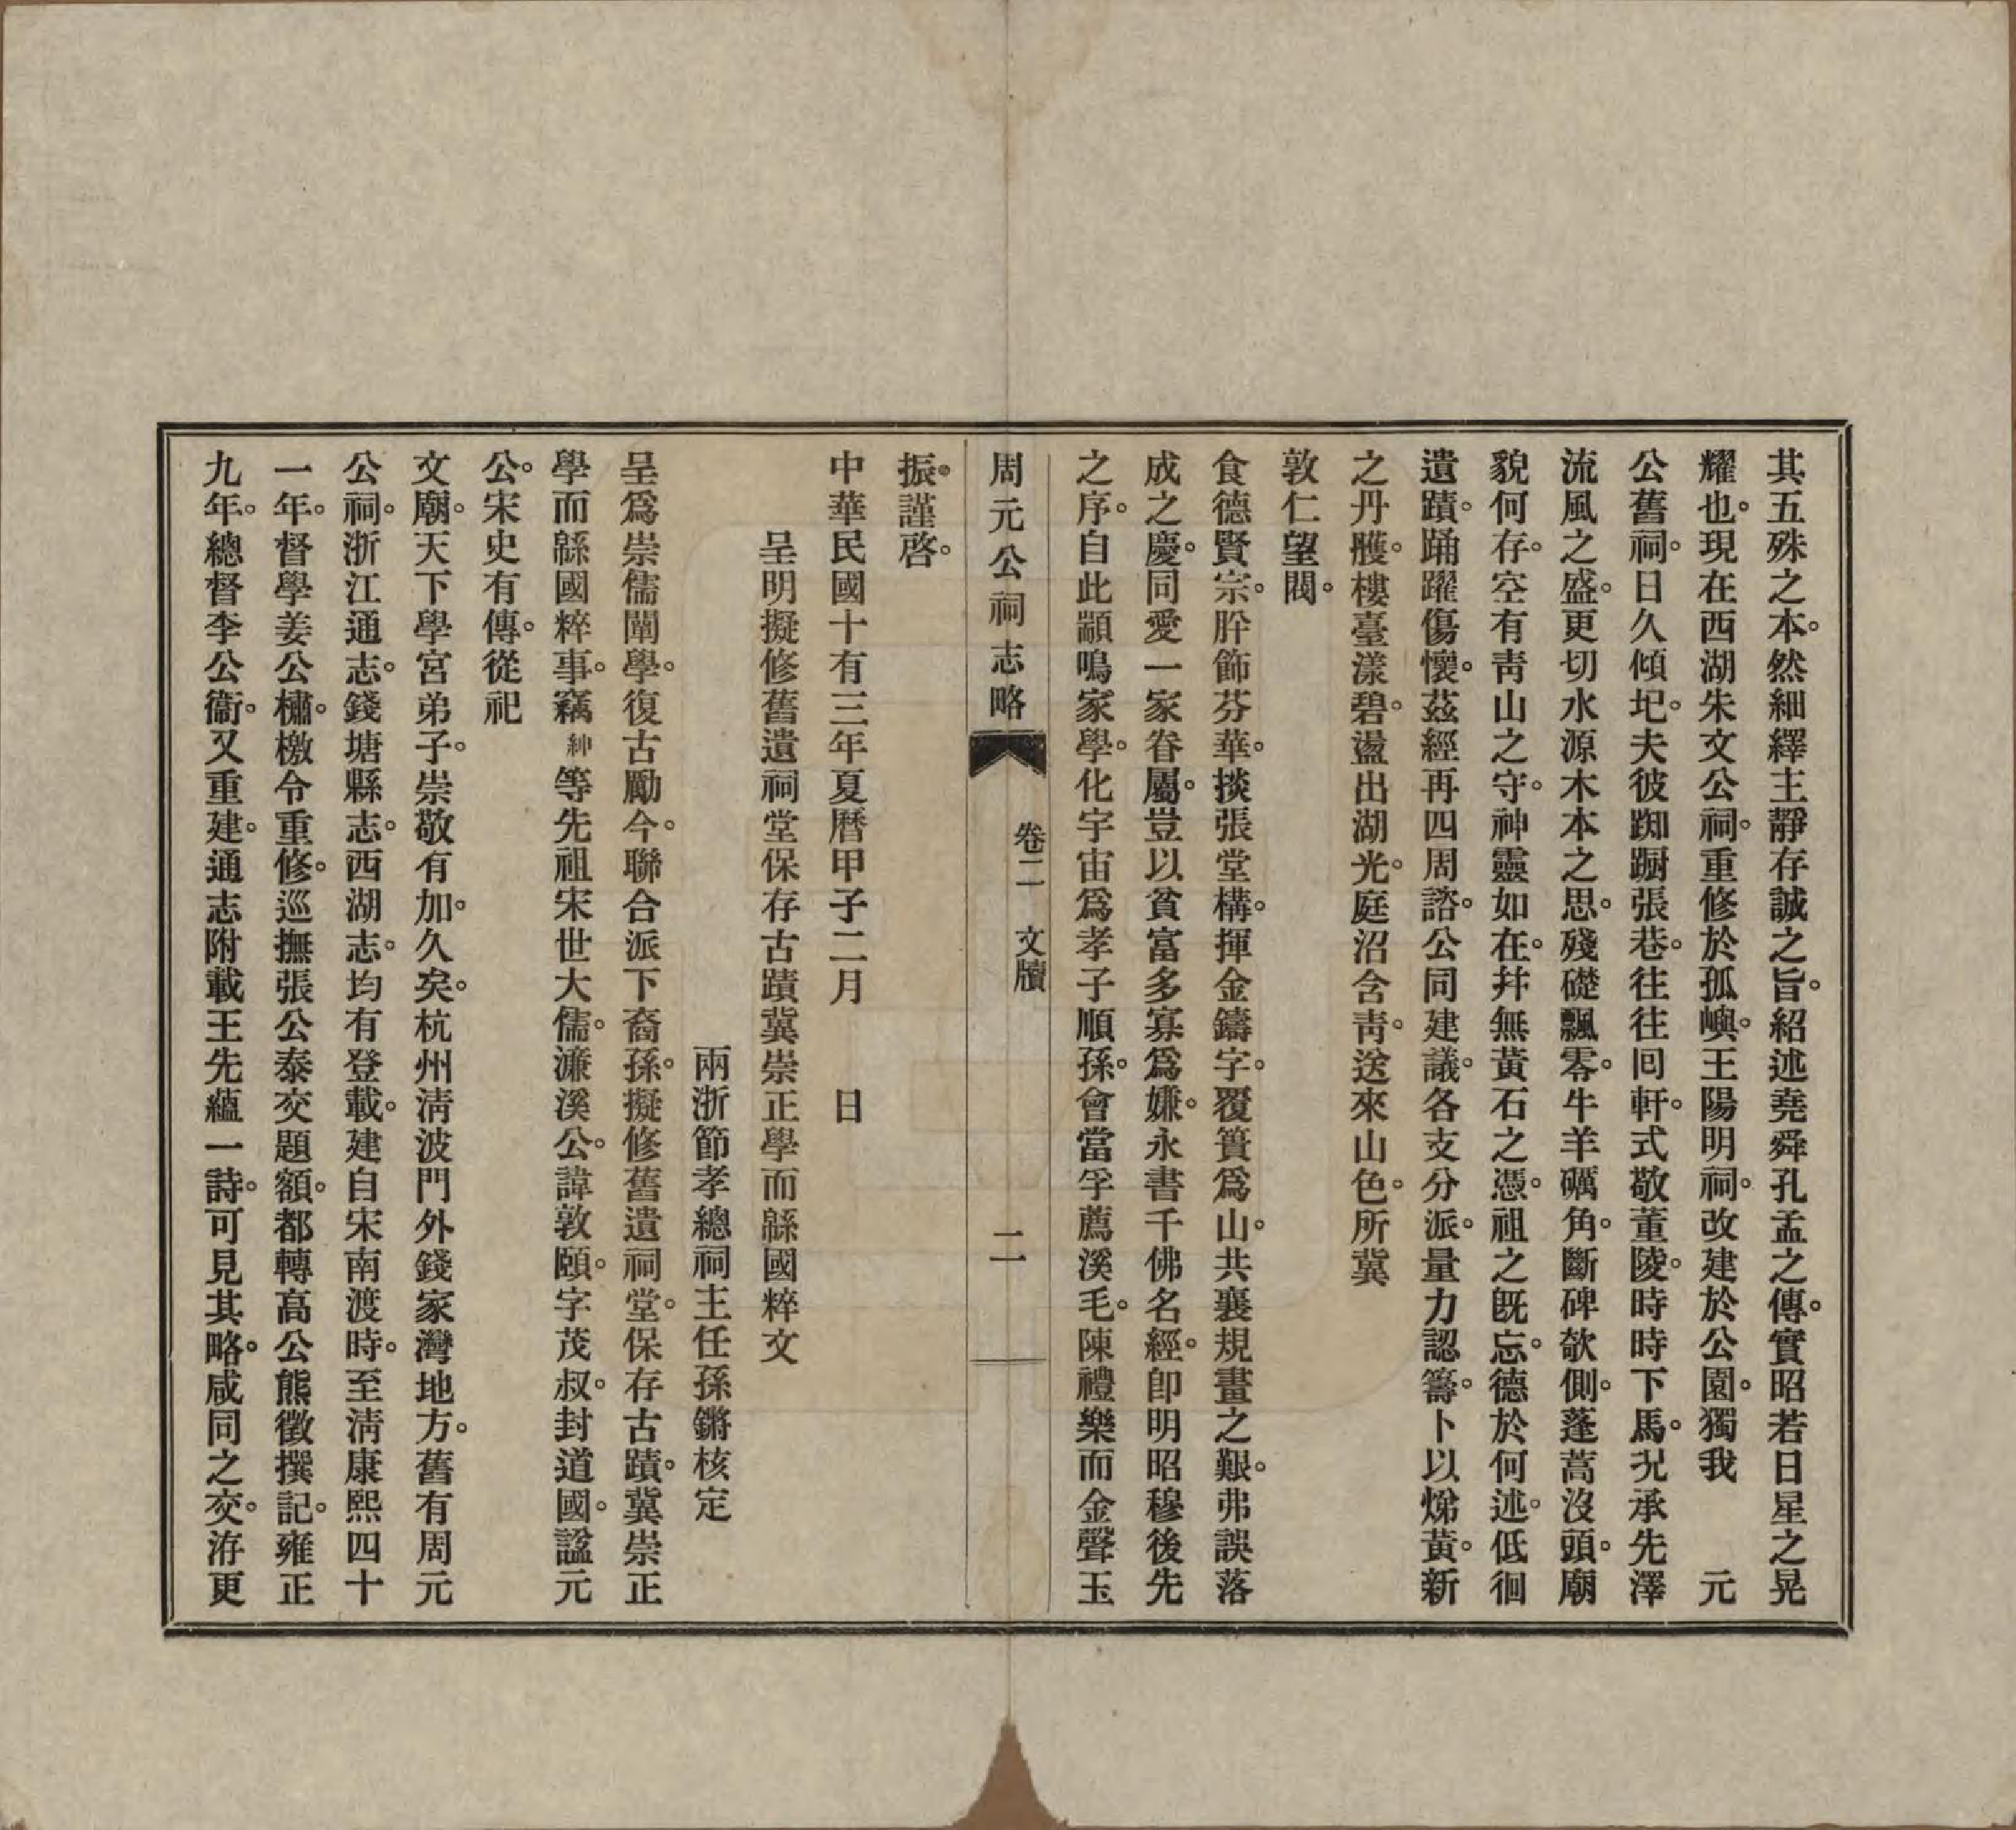 其五殊之本。然細繹主靜存誠之旨。紹述堯舜孔孟之傳。實昭若日星之晃
耀也。現在西湖朱文公祠。重修於孤嶼。王陽明祠。改建於公園。獨我　元
公舊祠。日久傾圮。夫彼踟躕張巷。往往囘軒。式敬董陵。時時下馬。況承先澤
流風之盛。更切水源木本之思。殘礎飄零。牛羊礪角。斷碑欹側。蓬蒿沒頭。廟
貌何存。空有靑山之守。神靈如在。幷無黃石之憑。祖之旣忘。德於何述。低徊
遺蹟。踊躍傷懷。茲經再四周諮。公同建議。各支分派。量力認籌。卜以焍黃。新
之丹雘。樓臺漾碧。盪出湖光。庭沼含靑。送來山色。所冀
敦仁望閥。
食德賢宗。肸飾芬華。掞張堂構。揮金鑄字。覆簣爲山。共襄規畫之艱。弗誤落
成之慶。同愛一家眷屬。豈以貧富多寡爲嫌。永書千佛名經。卽明昭穆後先
之序。自此顓鳴家學。化宇宙爲孝子順孫。會當孚薦溪毛。陳禮樂而金聲玉
周元公祠志略　卷二　文牘　二
振。謹啓。
中華民國十有三年夏曆甲子二月　　日
呈明擬修舊遺祠堂保存古蹟冀崇正學而繇國粹文
兩浙節孝總祠主任孫鏘核定
呈爲崇儒闡學。復古勵今。聯合派下裔孫。擬修舊遺祠堂。保存古蹟。冀崇正
學而繇國粹事。竊紳等先祖宋世大儒。濂溪公。諱敦頤。字茂叔。封道國。諡元
公。宋史有傳。從祀
文廟。天下學宮弟子。崇敬有加。久矣。杭州淸波門外錢家灣地方。舊有周元
公祠。浙江通志。錢塘縣志。西湖志。均有登載。建自宋南渡時。至淸康熙四十
一年。督學姜公橚。檄令重修。巡撫張公泰交題額。都轉高公熊徵撰記。雍正
九年。總督李公衞。又重建。通志附載王先蘊一詩。可見其略。咸同之交。洊更